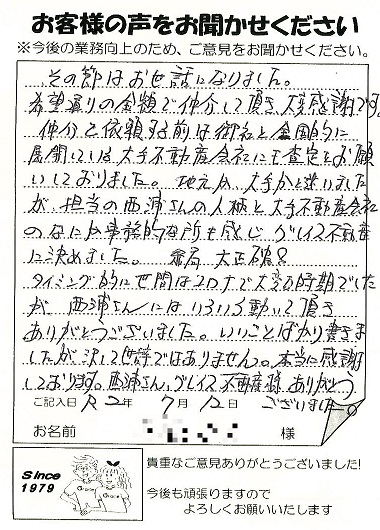 お客様の声をお聞かせください
※今後の業務向上のため、ご意見をお聞かせください。
その節はお世話になりました。
希望通りの金額で仲介して頂き大変感謝です。
仲介を依頼する前は御社と全国的に
展開している大手不動産会社にも査定をお願
いしておりました。地元か大手かと迷いました
が、担当の西浦さんの人柄と大手不動産会社
のなにか事務的な所も感じグレイス不動産
に決めました。結局大正解!!
タイミング的に世間はコロナで大変な時期でした
が西浦さんにはいろいろ動いて頂き
ありがとうございました。いいことばかり書きま
したが決して世辞ではありません。本当に感謝
しております。西浦さん、グレイス不動産様、ありがとう
ございました。
ご記入日 R2年 7月12日
お名前 様
Since
1979
貴重なご意見ありがとうございました!
今後も頑張りますので
よろしくお願いいたします